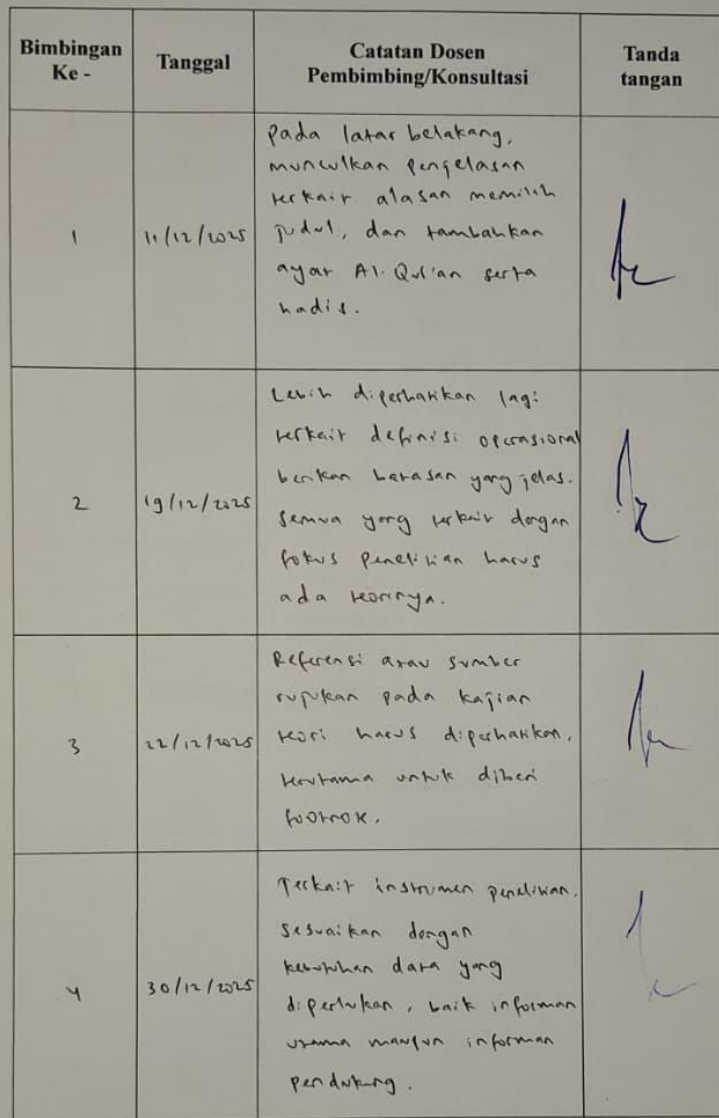 Bimbingan
Ke -
Tanggal
Catatan Dosen
Pembimbing/Konsultasi
Tanda
tangan
1
11/12/2025
pada latar belakang,
munculkan penjelasan
terkait alasan memilih
judul, dan tambahkan
ayat Al-Qur'an serta
hadis.
2
19/12/2025
Lebih diperhatikan lagi
terkait definisi operasional
berikan batasan yang jelas.
Semua yang terkait dengan
fokus penelitian harus
ada teorinya.
3
22/12/2025
Referensi atau sumber
rujukan pada kajian
teori harus diperhatikan,
terutama untuk diberi
footnote.
4
30/12/2025
Terkait instrumen penelitian,
sesuaikan dengan
kebutuhan data yang
diperlukan, baik informan
utama maupun informan
pendukung.